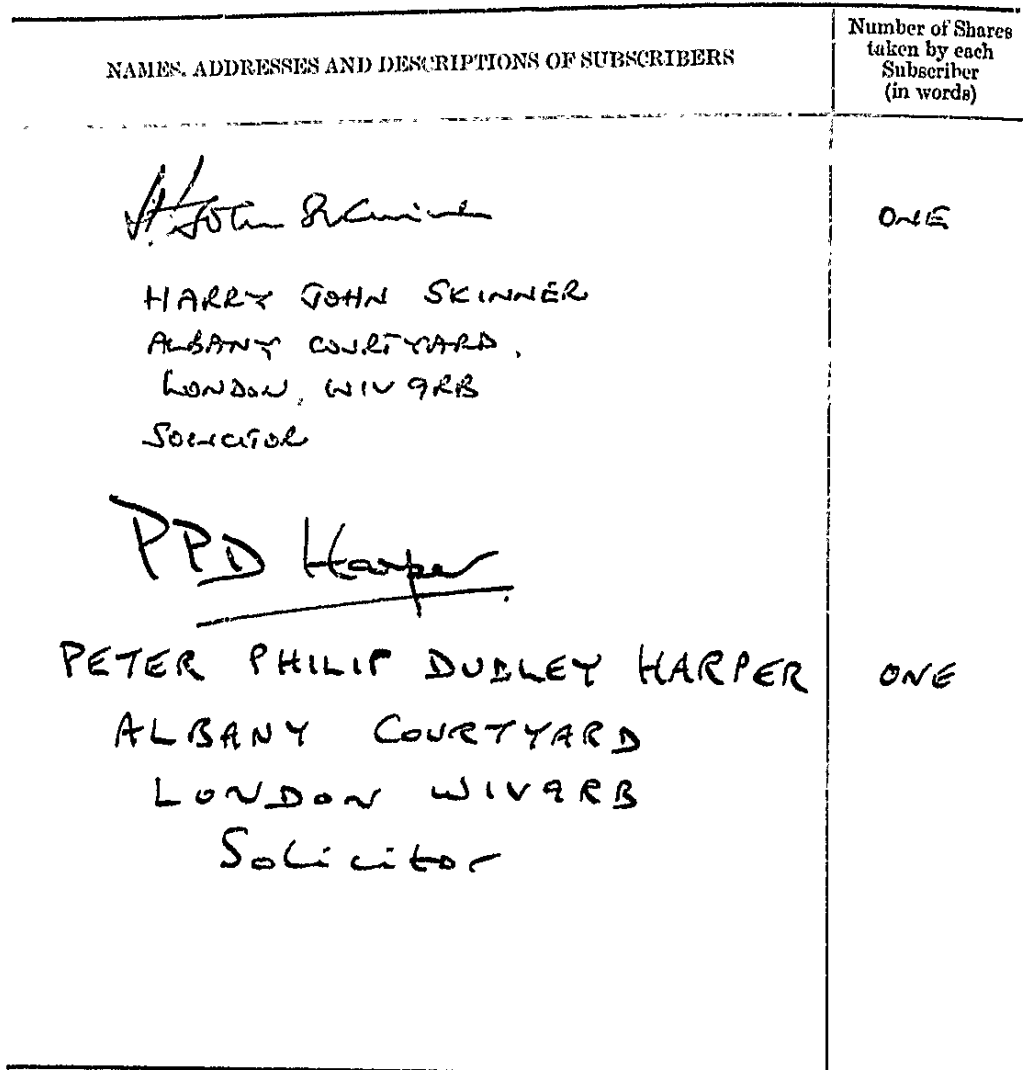 NAMES, ADDRESSES AND DESCRIPTIONS OF SUBSCRIBERS
Number of Shares
taken by each
Subscriber
(in words)
H. John Skinner
ONE
HARRY JOHN SKINNER
ALBANY COURTYARD,
LONDON, W1V 9RB
SOLICITOR
PPD Harper
PETER PHILIP DUDLEY HARPER
ONE
ALBANY COURTYARD
LONDON W1V9RB
Solicitor